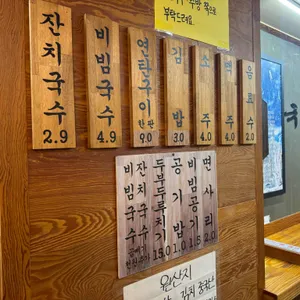 주방 쪽으로
부탁드려요.
잔치국수
2.9
비빔국수
4.9
연탄구이
한판
9.0
김밥
3.0
소주
4.0
맥주
4.0
음료수
2.0
잔치국수
비빔국수
곱빼기
두부두루치기
15.0
공기밥
1.0
비빔공기
1.5
면사리
2.0
원산지